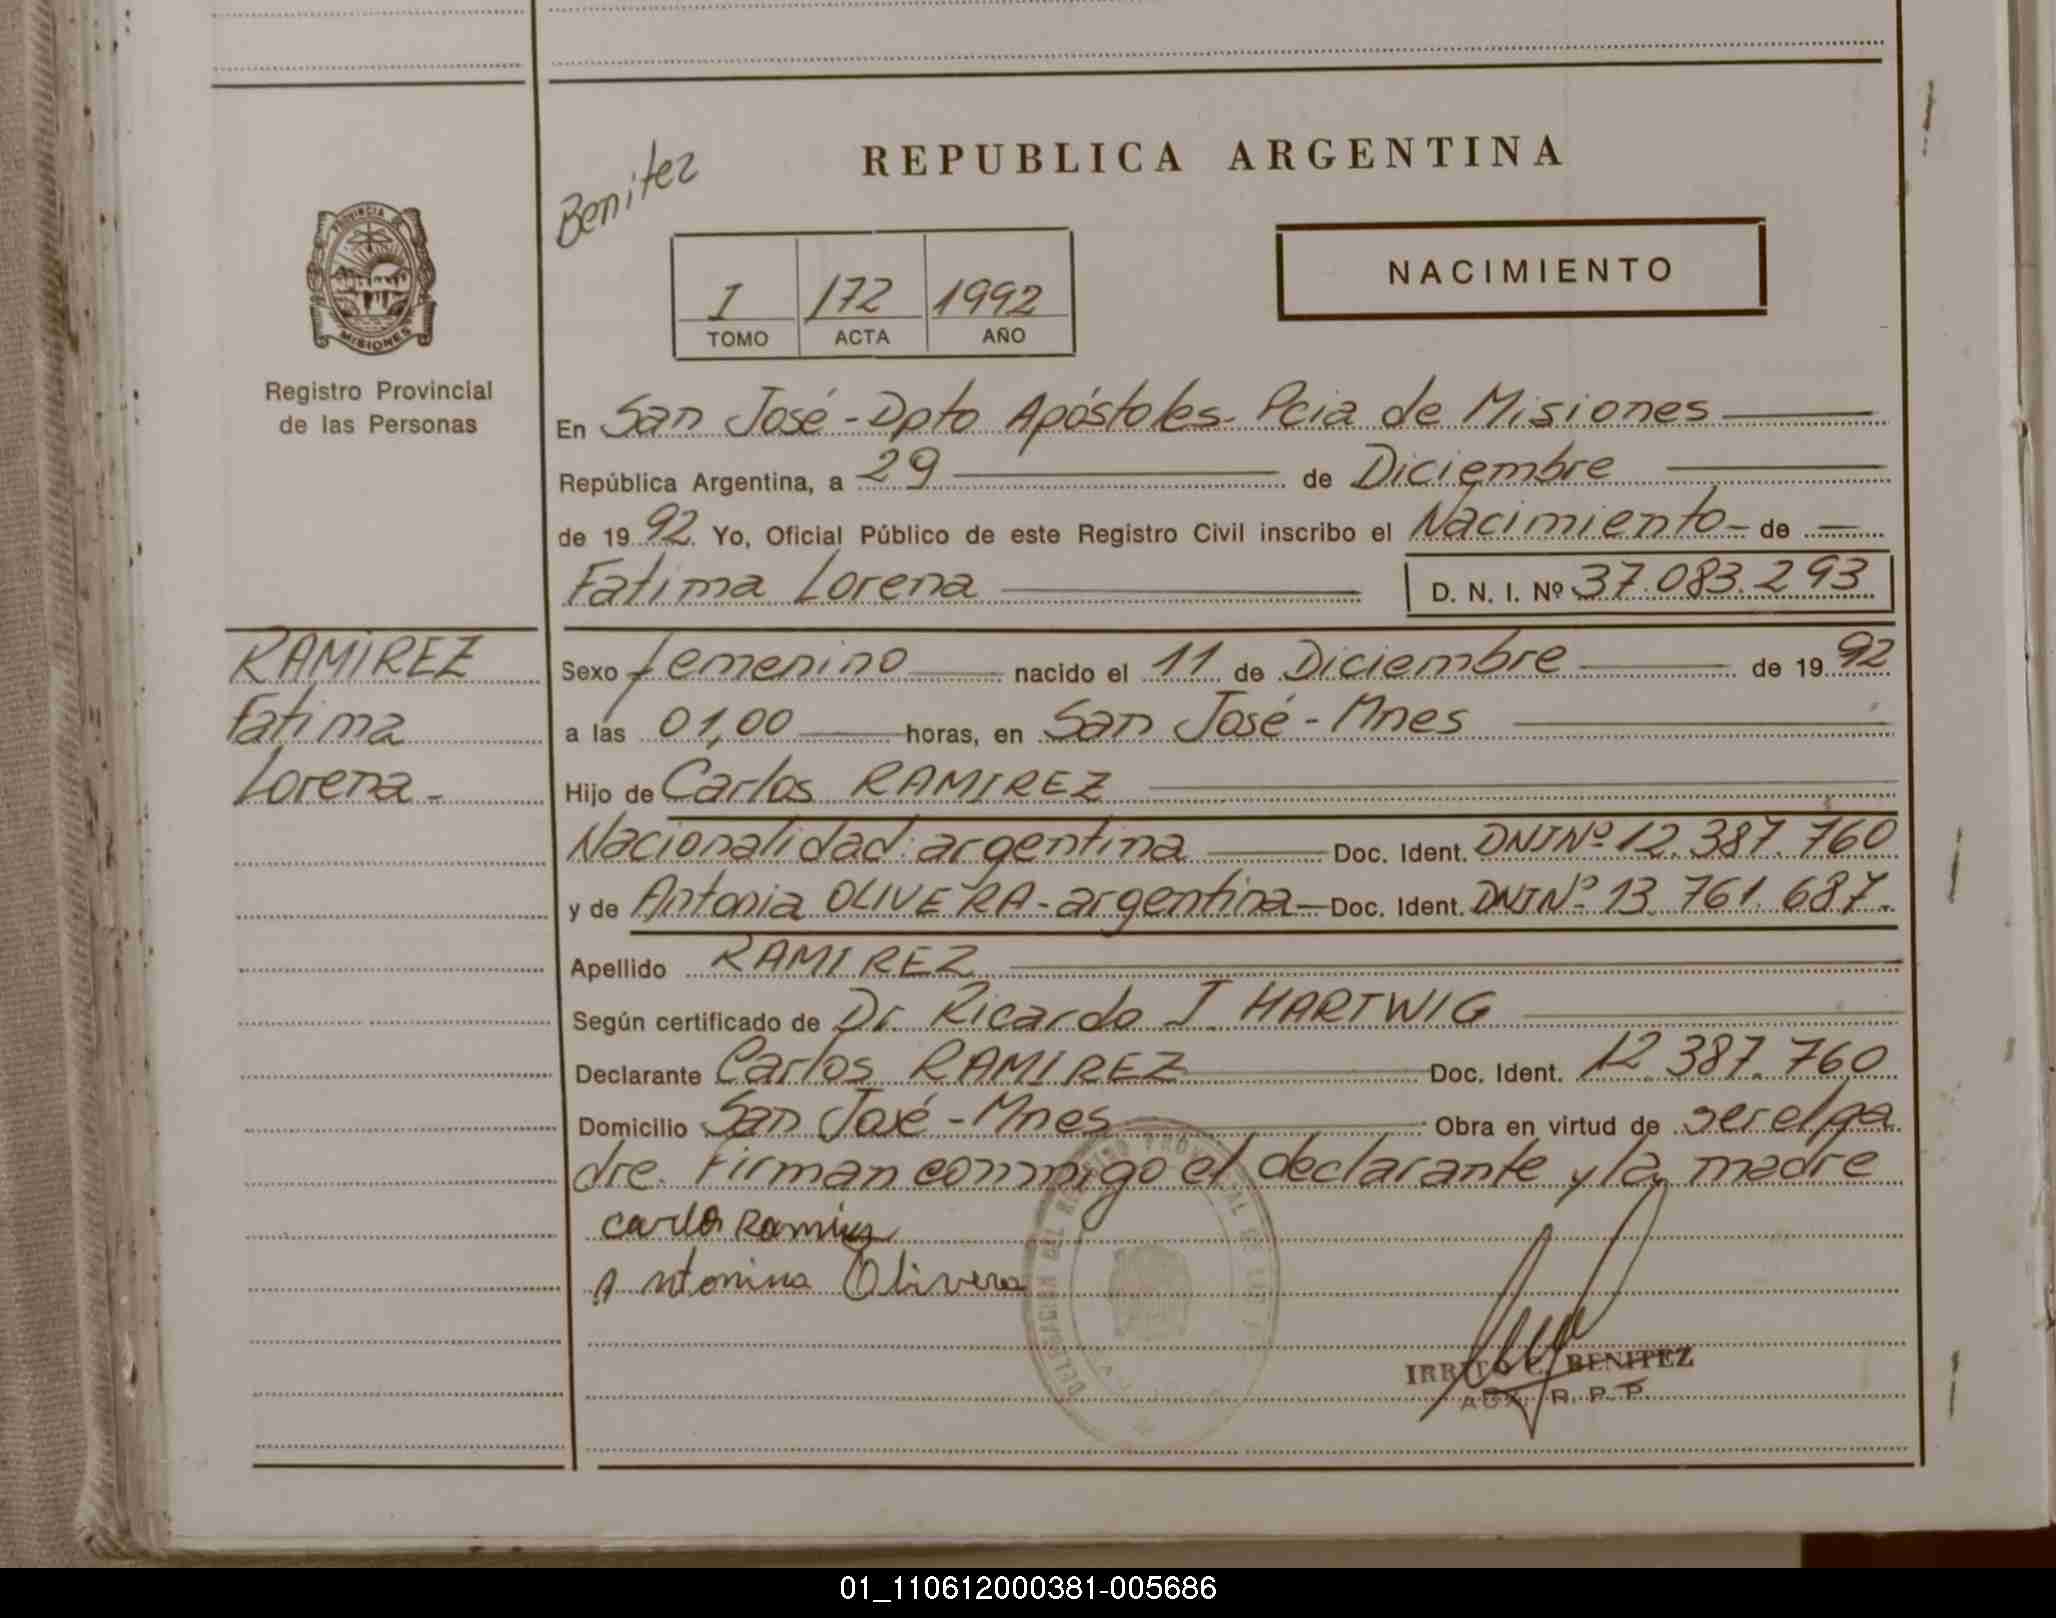 REPUBLICA ARGENTINA
Benitez
PROVINCIA
MISIONES
NACIMIENTO
I 172 1992
TOMO ACTA AÑO
Registro Provincial
de las Personas
En San José - Dpto Apóstoles - Pcia de Misiones
República Argentina, a 29 de Diciembre
de 1992 Yo, Oficial Público de este Registro Civil inscribo el Nacimiento - de
Fatima Lorena D. N. I. Nº 37.083.293
RAMIREZ
Fatima
Lorena -
Sexo femenino nacido el 11 de Diciembre de 1992
a las 01,00 horas, en San José - Mnes
Hijo de Carlos RAMIREZ
Nacionalidad argentina Doc. Ident. DNI Nº 12.387.760
y de Antonia OLIVERA - argentina - Doc. Ident. DNI Nº 13.761.687.
Apellido RAMIREZ
Según certificado de Dr. Ricardo J. HARTWIG
Declarante Carlos RAMIREZ Doc. Ident. 12.387.760
Domicilio San José - Mnes Obra en virtud de ser el pa
dre. Firman conmigo el declarante y la madre
Carlo Ramirez
Antonina Olivera
DELEGACION DEL REGISTRO PROVINCIAL DE LAS
BENITEZ
R. P. P.
01_110612000381-005686